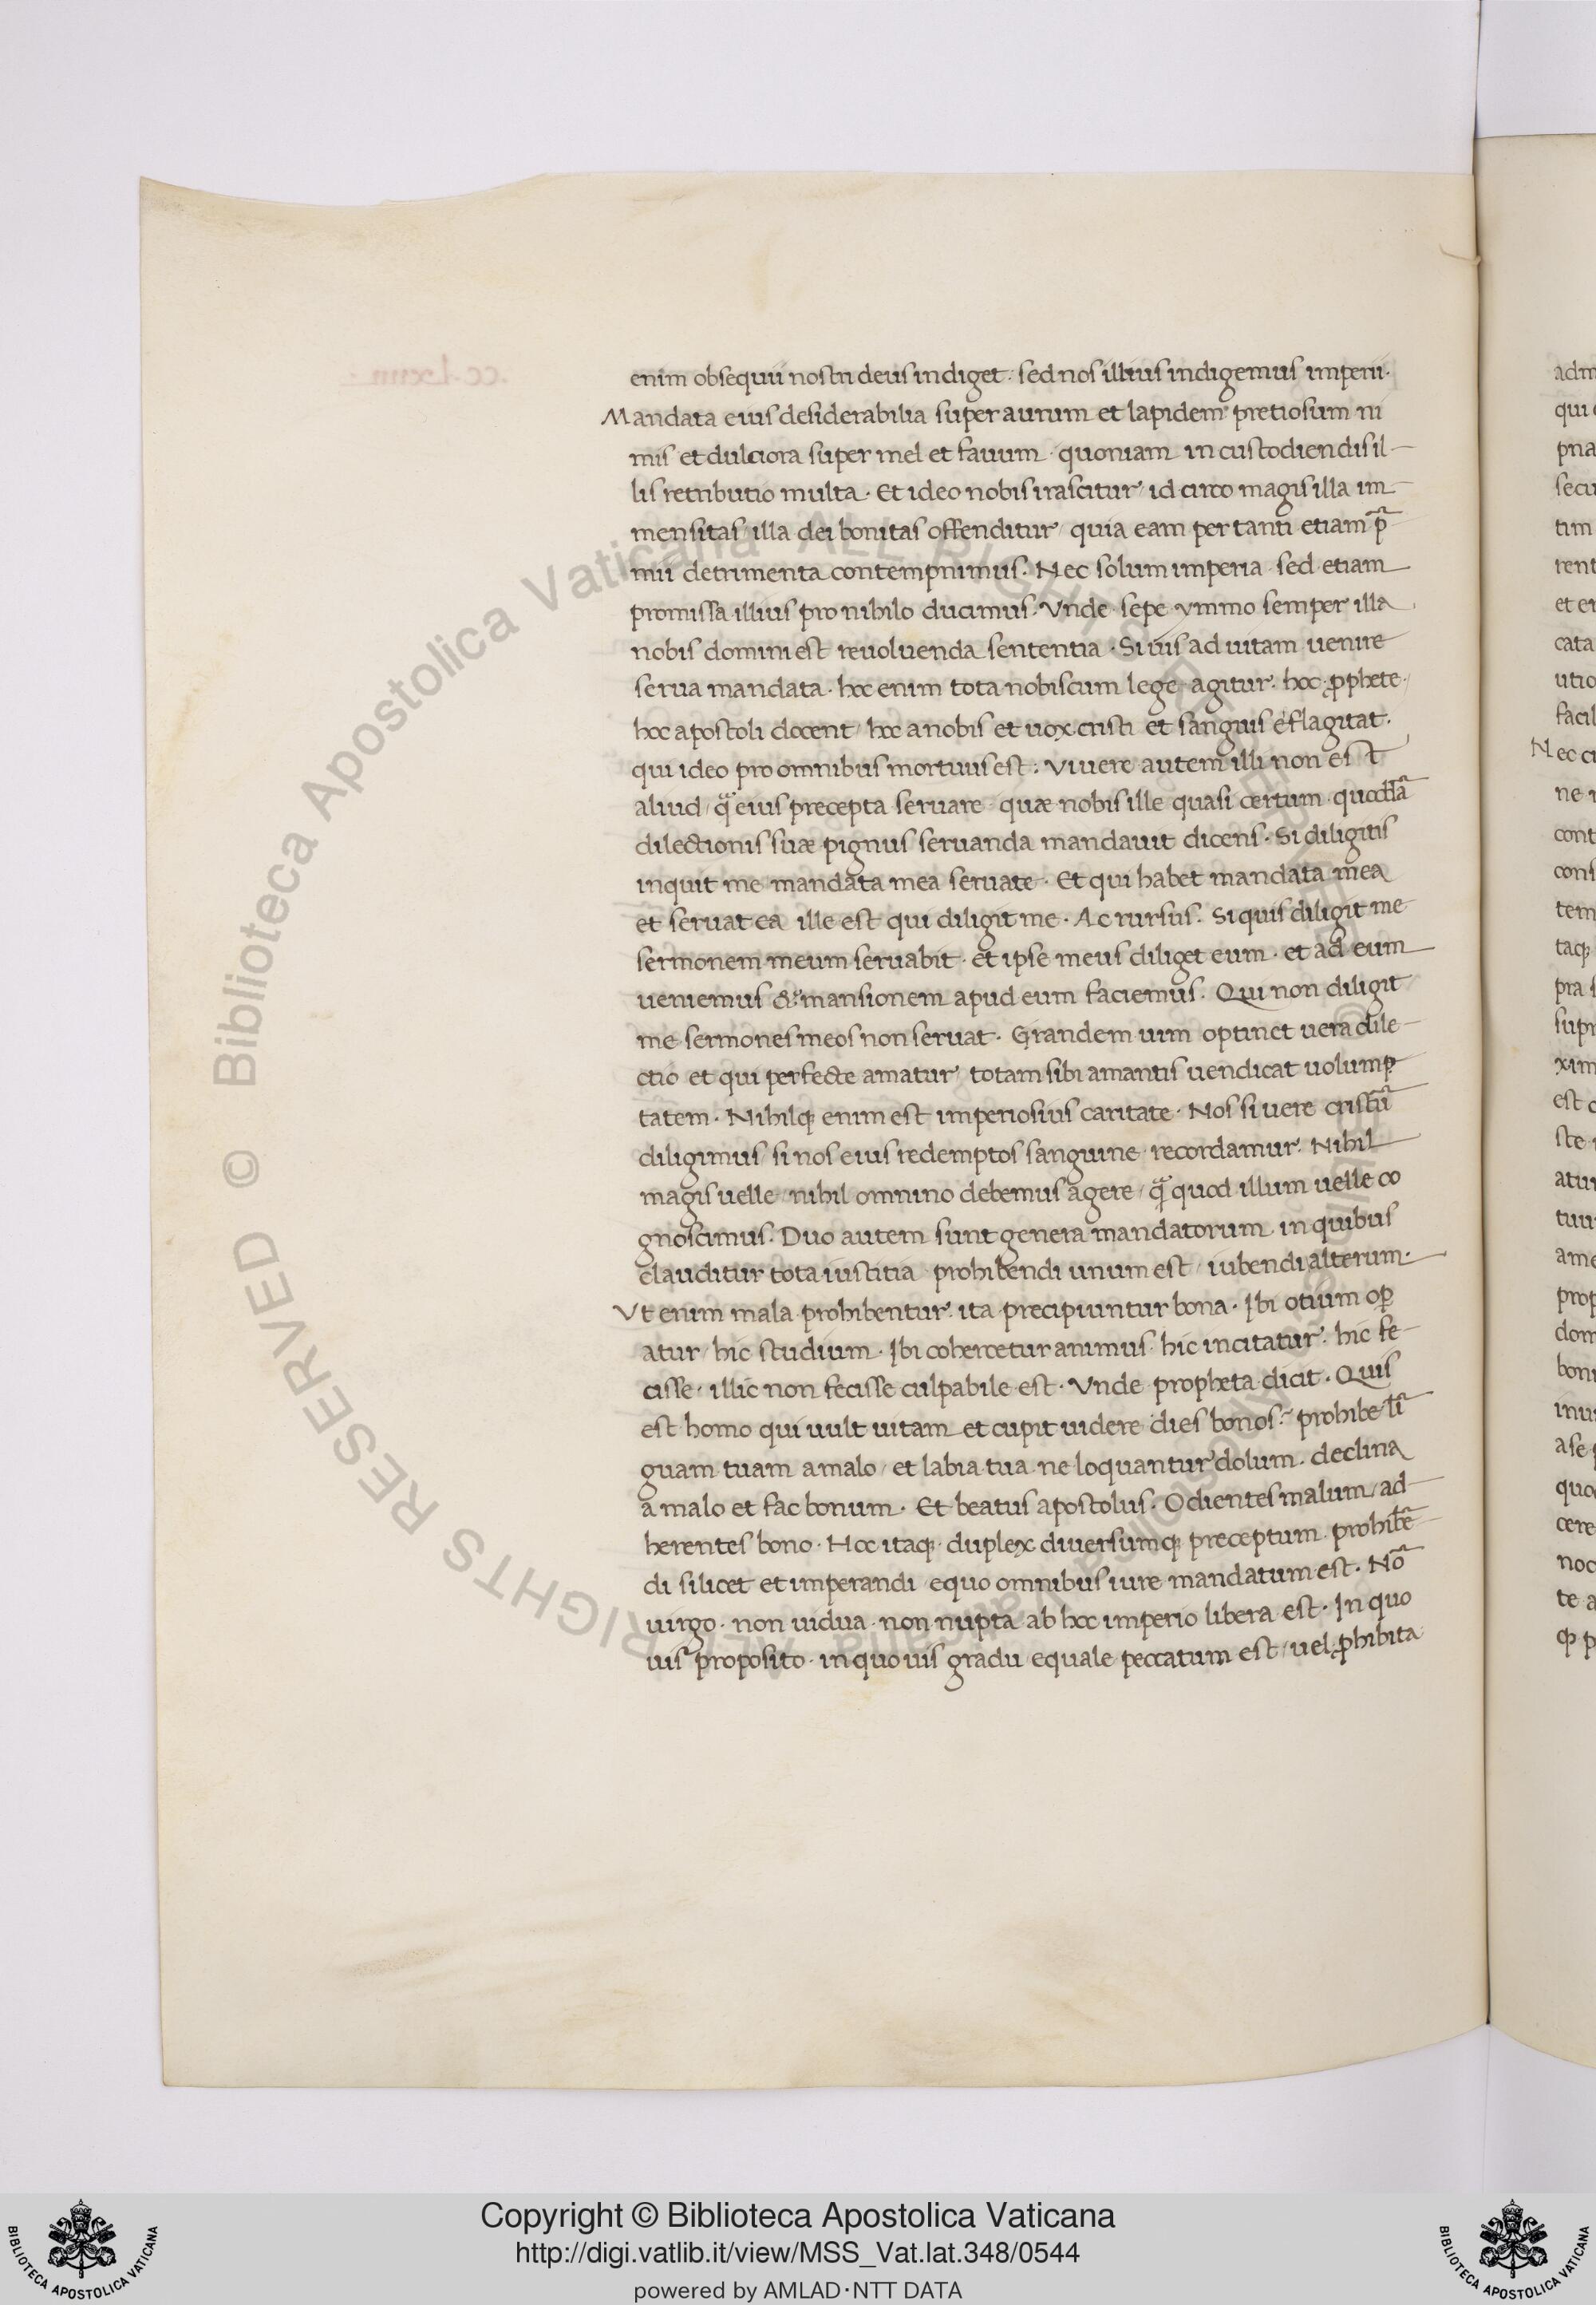 enim obsequii nostri deus indiget · sed nos illius indigemus imperii ·
Mandata eius desiderabilia super aurum et lapidem pretiosum ni
mis et dulciora super mel et fauum · quoniam in custodiendis il-
lis retributio multa · Et ideo nobis irascitur id circo magis illa im-
mensitas / illa dei bonitas offenditur / quia eam per tanti etiam p̃
mii detrimenta contempnimus · Nec solum imperia · sed etiam
promissa illius pro nihilo ducimus · Vnde sepe ymmo semper illa
nobis domini est reuoluenda sententia · Si uis ad uitam uenire
serua mandata · hoc enim tota nobiscum lege agitur · hoc ꝓphete ·
hoc apostoli docent / hoc a nobis et uox cristi et sanguis eflagitat ·
qui ideo pro omnibus mortuus est : Viuere autem illi non est
aliud / q̃ eius precepta seruare quæ nobis ille quasi certum · quoddã
dilectionis suæ pignus seruanda mandauit dicens · Si diligitis
inquit me mandata mea seruate · Et qui habet mandata mea
et seruat ea ille est qui diligit me · Ac rursus · Si quis diligit me
sermonem meum seruabit · et ipse meus diligit eum · et ad eum
ueniemus & mansionem apud eum faciemus · Qui non diligit
me sermones meos non seruat · Grandem uim optinet uera dile-
ctio et qui perfecte amatur totam sibi amantis uendicat uolump
tatem · Nihilqꝫ enim est imperiosius caritate · Nos si uere cristũ
diligimus / si nos eius redemptos sanguine recordamur · Nihil
magis uelle / nihil omnino debemus agere / q̃ quod illum uelle co
gnoscimus · Duo autem sunt genera mandatorum in quibus
clauditur tota iustitia prohibendi unum est / iubendi alterum ·
Vt enim mala prohibentur ita precipiuntur bona · Ibi otium oꝑ
atur / hic studium · Ibi cohercetur animus hic incitatur · hic fe-
cisse · illic non fecisse culpabile est · Vnde propheta dicit · Quis
est homo qui uult uitam et cupit uidere dies bonos · prohibe lĩ
guam tuam a malo / et labia tua ne loquantur dolum · declina
a malo et fac bonum · Et beatus apostolus · Odientes malum / ad-
herentes bono · Hoc itaqꝫ duplex diuersumqꝫ preceptum prohibẽ
di silicet et imperandi equo omnibus iure mandatum est · Nõ
uirgo · non uidua · non nupta ab hoc imperio libera est · In quo
uis proposito · in quo uis gradu equale peccatum est / uel ꝓhibita
Copyright © Biblioteca Apostolica Vaticana
http://digi.vatlib.it/view/MSS_Vat.lat.348/0544
powered by AMLAD·NTT DATA
© Biblioteca Apostolica Vaticana ALL RIGHTS RESERVED
BIBLIOTECA APOSTOLICA VATICANA
BIBLIOTECA APOSTOLICA VATICANA